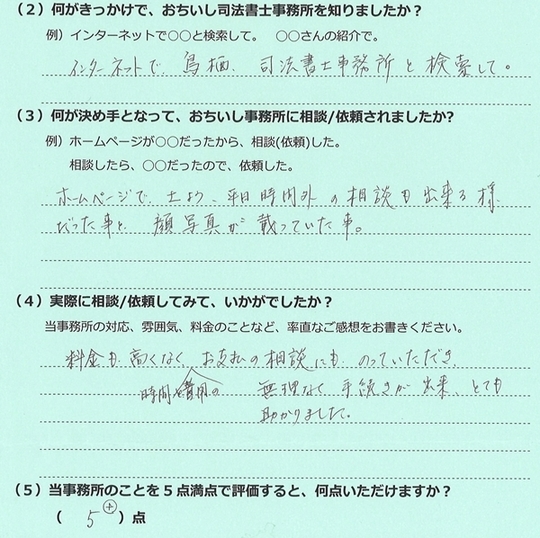 （２）何がきっかけで、おちいし司法書士事務所を知りましたか？
例）インターネットで○○と検索して。　○○さんの紹介で。
インターネットで、鳥栖、司法書士事務所と検索して。
（３）何が決め手となって、おちいし事務所に相談/依頼されましたか?
例）ホームページが○○だったから、相談(依頼)した。
相談したら、○○だったので、依頼した。
ホームページで、土日、平日時間外の相談も出来る様
だった事と、顔写真が載っていた事。
（４）実際に相談/依頼してみて、いかがでしたか？
当事務所の対応、雰囲気、料金のことなど、率直なご感想をお書きください。
料金も高くなく、お支払の相談にも、のっていただき、
時間と費用の　無理なく手続きが出来、とても
助かりました。
（５）当事務所のことを５点満点で評価すると、何点いただけますか？
（　5⊕　）点